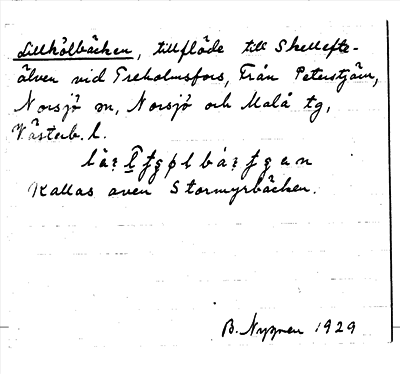 Lillhölbäcken, tillflöde till Skellefte-
älven vid Treholmsfors, Från Peterstjärn,
Norsjö m, Norsjö och Malå tg,
Västerb. l.
Kallas även Stormyrbäcken.
B. Nygren 1929